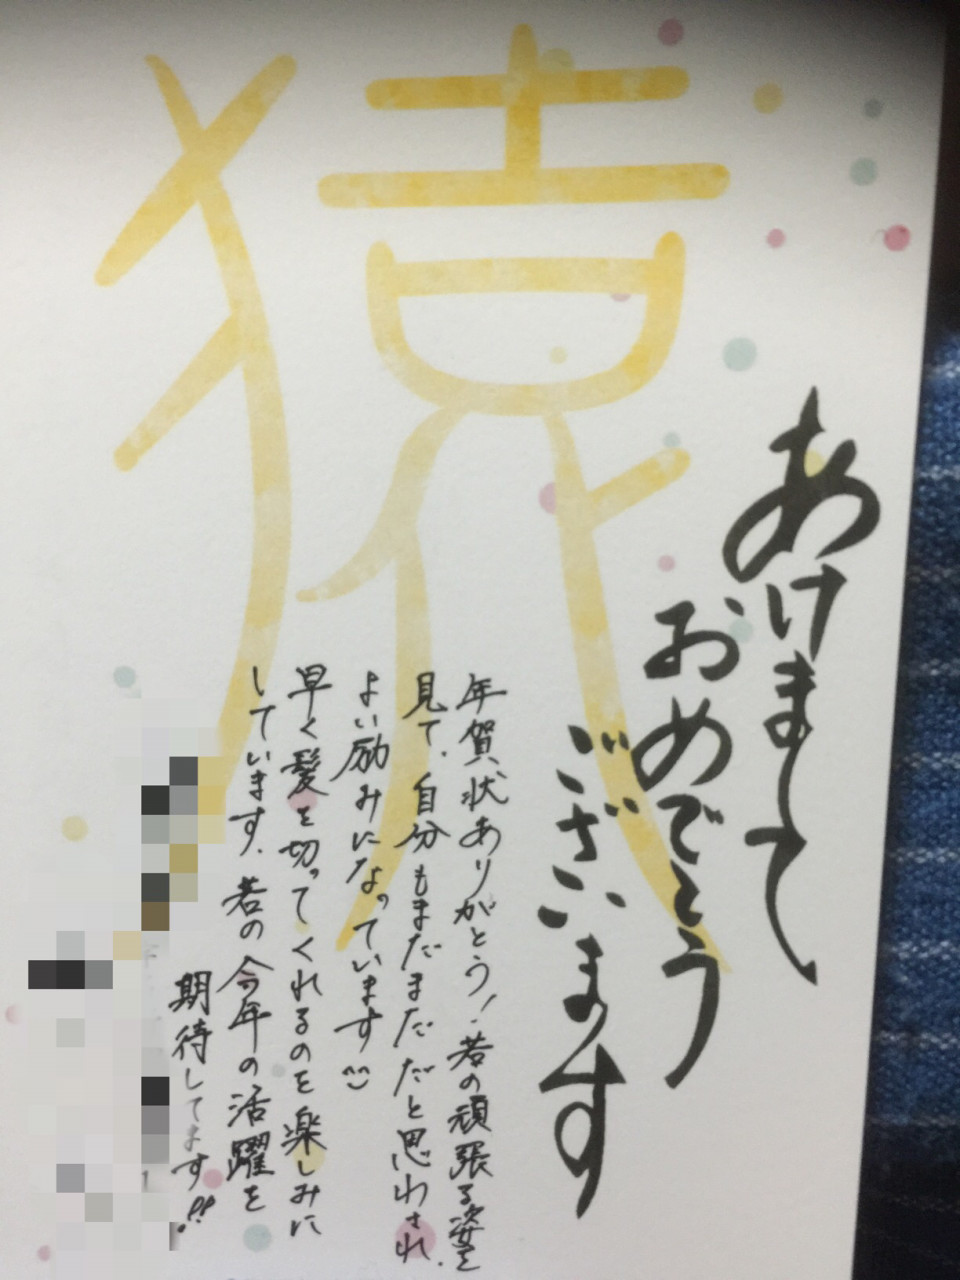 猿
あけまして
おめでとう
ございます
年賀状ありがとう!若の頑張る姿を
見て、自分もまだまだだと思わされ、
よい励みになっています^^
早く髪を切ってくれるのを楽しみに
しています。若の今年の活躍を
期待してます!!